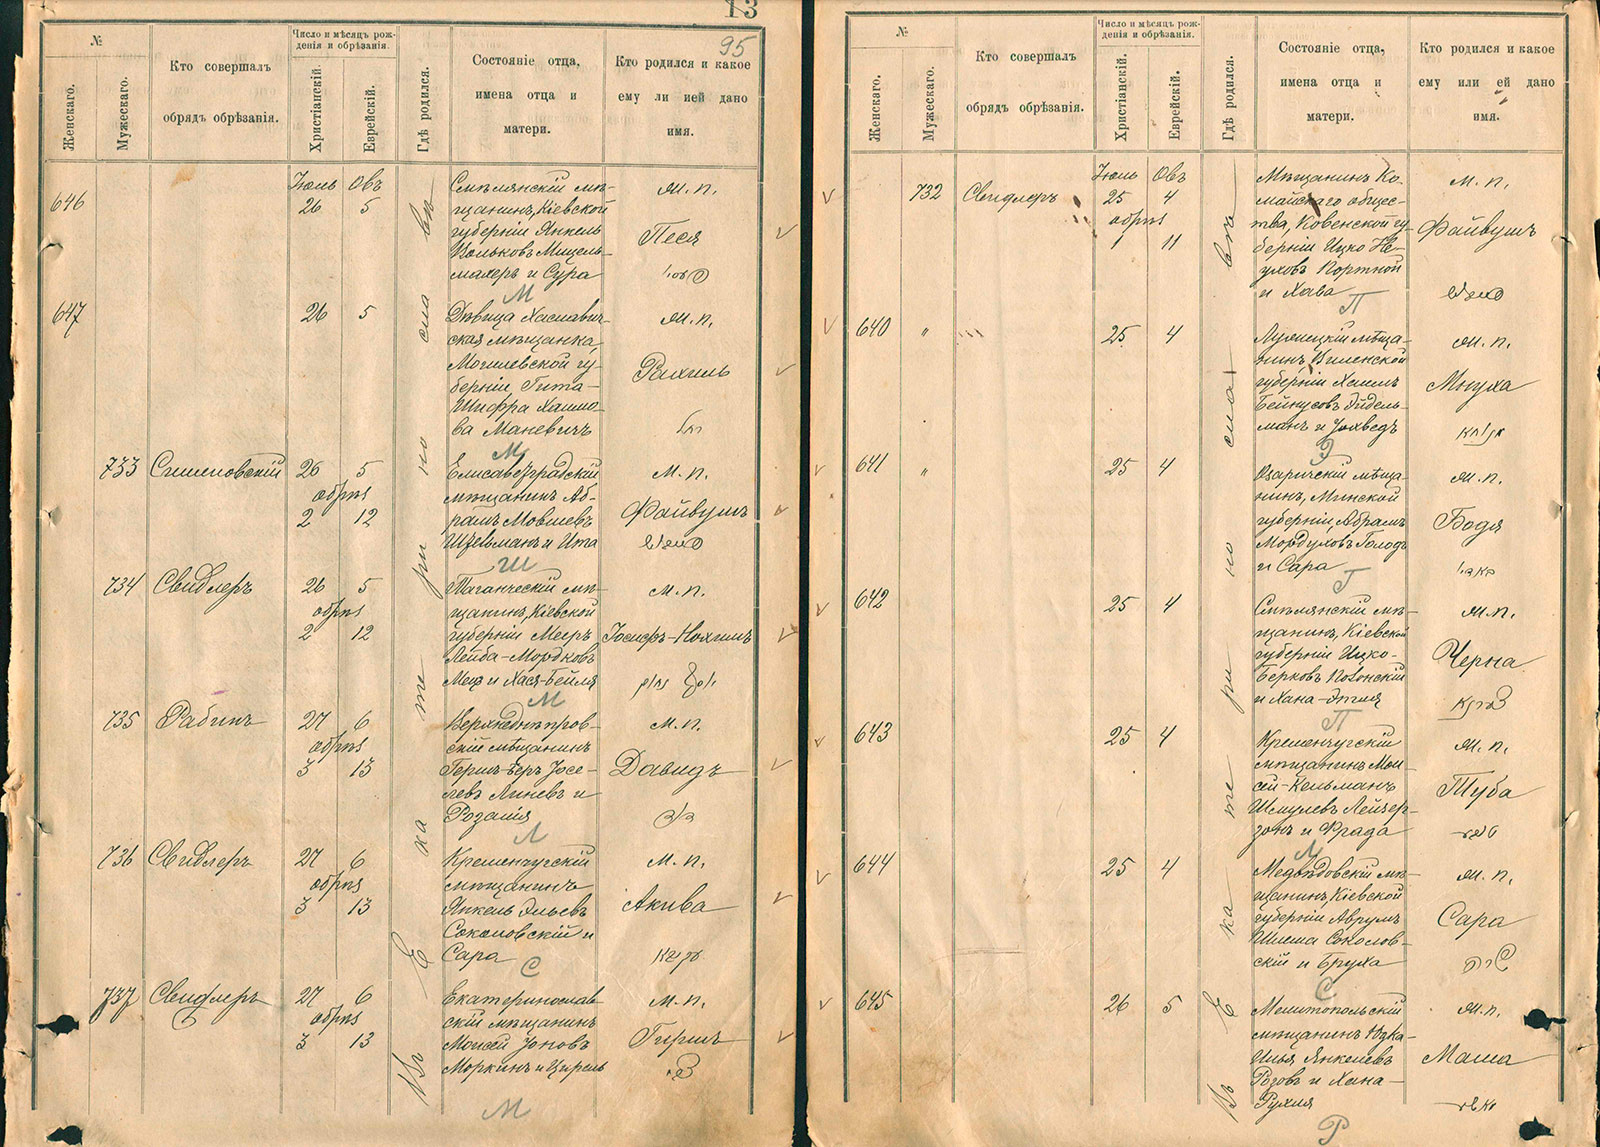 13
95
№
Женскаго.
Мужескаго.
Кто совершалъ
обрядъ обрѣзанія.
Число и мѣсяцъ рож-
денія и обрѣзанія.
Христіанскій.
Еврейскій.
Гдѣ родился.
Состояніе отца,
имена отца и
матери.
Кто родился и какое
ему ли ией дано
имя.
Въ Екатеринославѣ
646
Іюль Овъ
26 5
Смѣлянскій мѣ-
щанинъ, Кіевской
губерніи Янкель
Мицель-
махеръ и Сура
М
м. п.
Песя
647
26 5
Дѣвица Хаславич-
ская мѣщанка,
Могилевской гу-
берніи Гита-
Шифра Хаимо-
ва Маневичъ
М
м. п.
Рахиль
רחל
733 26 5
обрѣз
2 12
Елисаветградскій
мѣщанинъ Аб-
рамъ Мовшевъ
и Ита
Ш
м. п.
Файвушъ
פייוויש
734 Свидлеръ 26 5
обрѣз
2 12
Таганческій мѣ-
щанинъ, Кіевской
губерніи Меер-
Лейба-Мордковъ
и Хася-Бейля
М
м. п.
Іосифъ-Нохимъ
735 Рабинъ 27 6
обрѣз
3 13
Верхнеднѣпров-
скій мѣщанинъ
Герш-Беръ Іосе-
левъ Линевъ и
Розалія
Л
м. п.
Давидъ
דוד
736 Свидлеръ 27 6
обрѣз
3 13
Кременчугскій
мѣщанинъ
Янкель Эльевъ
Соколовскій и
Сара
С
м. п.
Акива
עקיבא
737 Свидлеръ 27 6
обрѣз
3 13
Екатеринослав-
скій мѣщанинъ
Моисей Іоновъ
Моркинъ и Цирель
М
м. п.
Гиршъ
№
Женскаго.
Мужескаго.
Кто совершалъ
обрядъ обрѣзанія.
Число и мѣсяцъ рож-
денія и обрѣзанія.
Христіанскій.
Еврейскій.
Гдѣ родился.
Состояніе отца,
имена отца и
матери.
Кто родился и какое
ему или ей дано
имя.
Въ Екатеринославѣ
732 Свидлеръ
Іюль Овъ
25 4
обрѣз
1 11
Мѣщанинъ Ко-
майскаго общес-
тва, Ковенской гу-
берніи Ицко Не-
уховъ Портной
и Хава
П
м. п.
Файвушъ
פייוויש
640 " 25 4
мѣща-
нинъ, Виленской
губерніи Хаимъ
Бейнусовъ Эйдель-
манъ и Іохведъ
Э
м. п.
Мнуха
641 " 25 4
Озаричскій мѣща-
нинъ, Минской
губерніи, Абрамъ
Мордуховъ Голодъ
и Сара
Г
м. п.
Бодя
642 25 4
Смѣлянскій мѣ-
щанинъ, Кіевской
губерніи Ицко-
Берковъ
и Хана-Этля
П
м. п.
Черна
643 25 4
Кременчугскій
мѣщанинъ Мои-
сей-Кельманъ
Шмулевъ Лейзер-
зонъ и Фрада
Л
м. п.
Туба
644 25 4
Медвѣдовскій мѣ-
щанинъ, Кіевской
губерніи Аврумъ
Шлема Соколов-
скій и Бруха
С
м. п.
Сара
שרה
645 26 5
Мелитопольскій
мѣщанинъ
Илья Янкелевъ
Розовъ и Хана-
Рухля
Р
м. п.
Маша